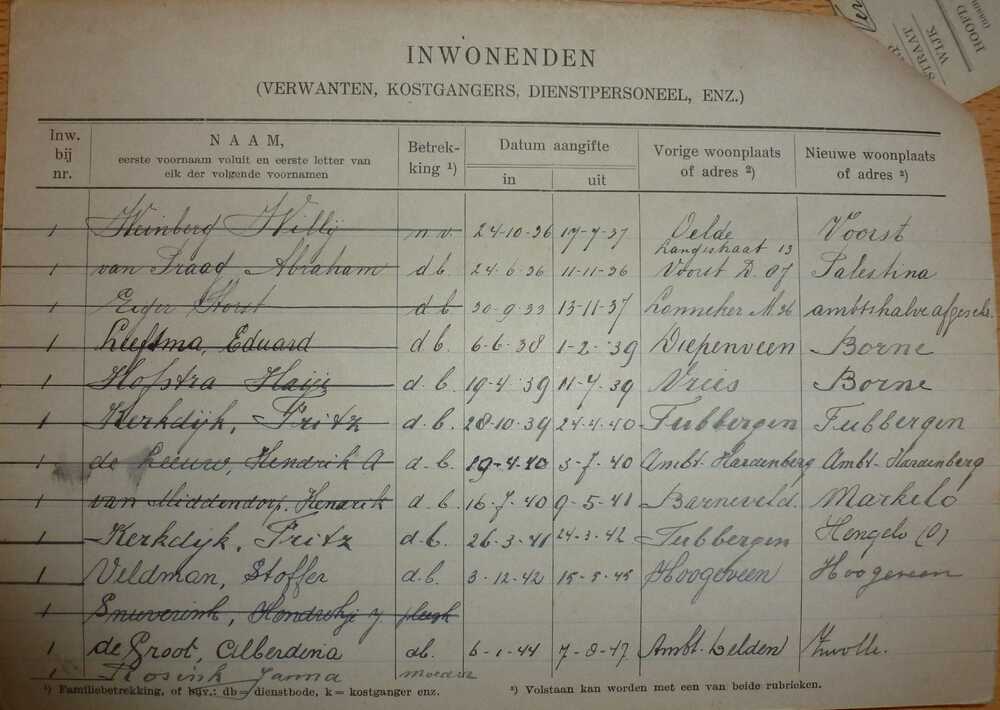 HOOFD
WIJK
STRAAT
INWONENDEN
(VERWANTEN, KOSTGANGERS, DIENSTPERSONEEL, ENZ.)
Inw. bij nr. NAAM, eerste voornaam voluit en eerste letter van elk der volgende voornamen Betrekking ¹) Datum aangifte in uit Vorige woonplaats of adres ²) Nieuwe woonplaats of adres ²)
1 Weinberg Willy n.v. 24-10-36 17-7-37 Oelde Langestraat 13 Voorst
1 van Praag Abraham d.b. 24-6-36 11-11-36 Voorst D. 97 Palestina
1 Horst d.b. 30-9-33 13-11-37 Lonneker M 36 ambtshalve afgeschr.
1 Leefsma, Eduard d.b. 6-6-38 1-2-39 Diepenveen Borne
1 Hofstra Haije d.b. 19-4-39 11-7-39 Vries Borne
1 Kerkdijk, Fritz d.b. 28-10-39 24-4-40 Tubbergen Tubbergen
1 de Leeuw, Hendrik A d.b. 29-4-40 5-7-40 Ambt-Hardenberg Ambt-Hardenberg
1 van Middendorp, Hendrik d.b. 16-7-40 9-5-41 Barneveld Markelo
1 Kerkdijk, Fritz d.b. 26-3-41 24-3-42 Tubbergen Hengelo (O)
1 Veldman, Stoffer d.b. 3-12-42 15-5-45 Hoogeveen Hoogeveen
1 Snuverink, Hendrikje J
1 de Groot, Alberdina db. 6-1-44 7-8-47 Ambt-Delden Zwolle.
1 Rosink Janna moeder
¹) Familiebetrekking, of bijv.: db = dienstbode, k = kostganger enz. ²) Volstaan kan worden met een van beide rubrieken.